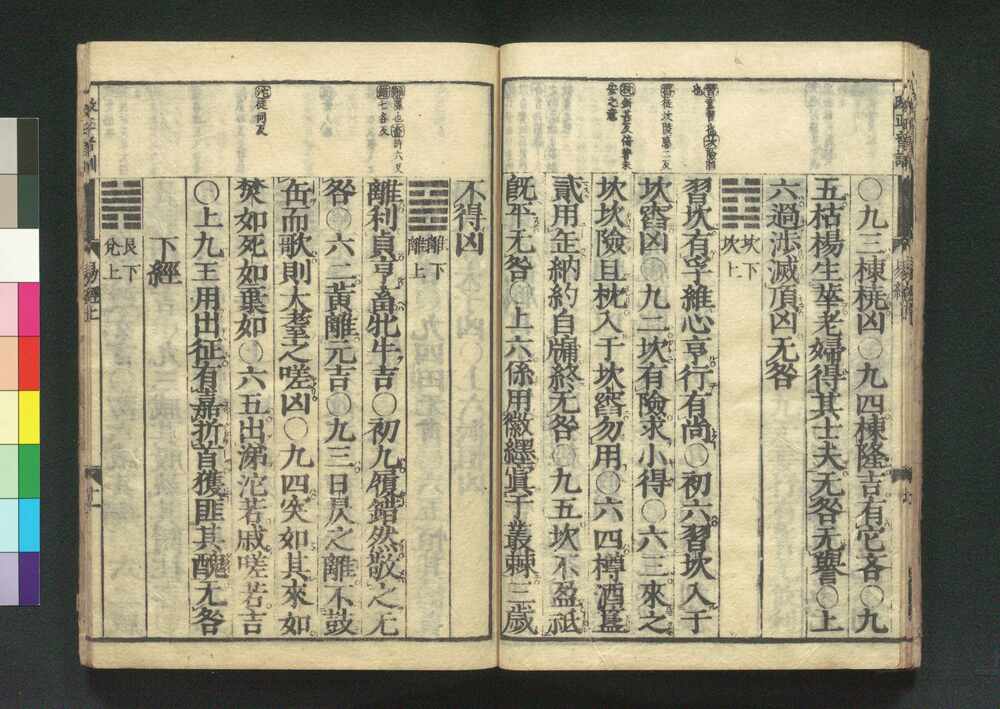 ○九三棟桡凶○九四棟隆吉有它吝○九
五枯楊生華老婦得其士夫无咎无譽○上
六過涉滅頂凶无咎
坎下
坎上
習坎有孚維心亨行有尚○初六習坎入于
坎窞凶○九二坎有險求小得○六三來之
坎坎險且枕入于坎窞勿用○六四樽酒簋
貳用缶納約自牖終无咎○九五坎不盈祗
既平无咎○上六係用徽纆寘于叢棘三歲
不得凶
離下
離上
離利貞亨畜牝牛吉○初九履錯然敬之无
咎○六二黃離元吉○九三日昃之離不鼓
缶而歌則大耋之嗟凶○九四突如其來如
焚如死如棄如○六五出涕沱若戚嗟若吉
○上九王用出征有嘉折首獲匪其醜无咎
下經
艮下
兌上
易經上